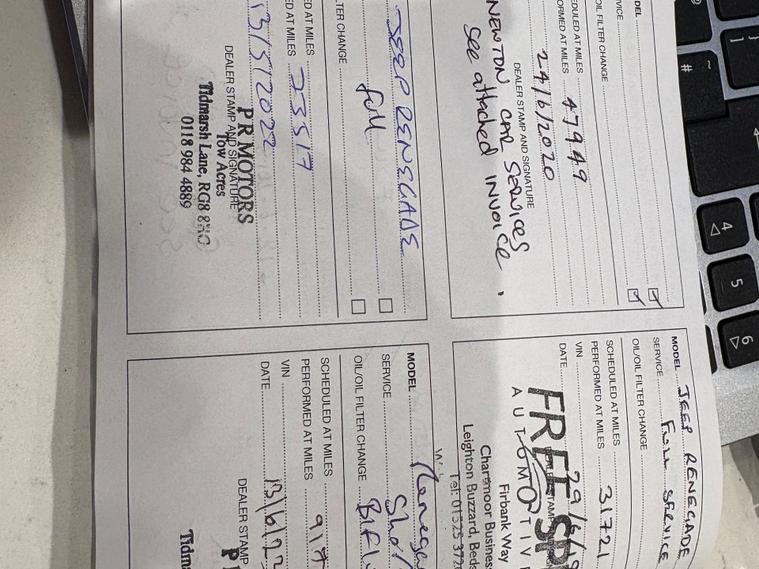 MODEL JEEP RENEGADE
SERVICE FULL SERVICE
OIL/OIL FILTER CHANGE
SCHEDULED AT MILES
PERFORMED AT MILES 31721
VIN
DATE 29/6/
FREE SP
AUTOMOTIV
Firbank Way
Leighton Buzzard, Beds
DEL
SERVICE
OIL FILTER CHANGE
PERFORMED AT MILES 47949
24/6/2020
DEALER STAMP AND SIGNATURE
NEWTON CAR SERVICES
See attached INVOICE.
MODEL Renega
SERVICE Sho
OIL/OIL FILTER CHANGE
SCHEDULED AT MILES
PERFORMED AT MILES 917
VIN
DATE 13/6/23
DEALER STAMP
P
Tidma
JEEP RENEGADE
full
TER CHANGE
ED AT MILES
ED AT MILES
13/5/2022
DEALER STAMP AND SIGNATURE
P R MOTORS
Tow Acres
Tidmarsh Lane, RG8
0118 984 4889
4
5
6
#
~
]